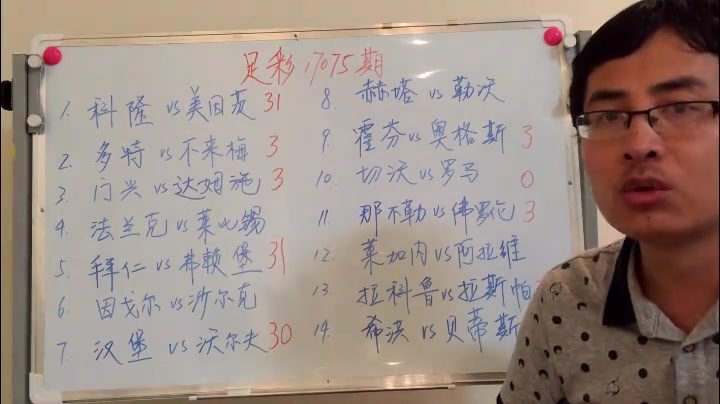 足彩17075期
1. 科隆 vs 美因茨 31
2. 多特 vs 不来梅 3
3. 门兴 vs 达姆施 3
4. 法兰克 vs 莱比锡
5. 拜仁 vs 弗赖堡 31
6. 因戈尔 vs 沙尔克
7. 汉堡 vs 沃尔夫 30
8. 赫塔 vs 勒沃
9. 霍芬 vs 奥格斯 3
10. 切沃 vs 罗马 0
11. 那不勒 vs 佛罗伦 3
12. 莱加内 vs 阿拉维
13. 拉科鲁 vs 拉斯帕
14. 希洪 vs 贝蒂斯